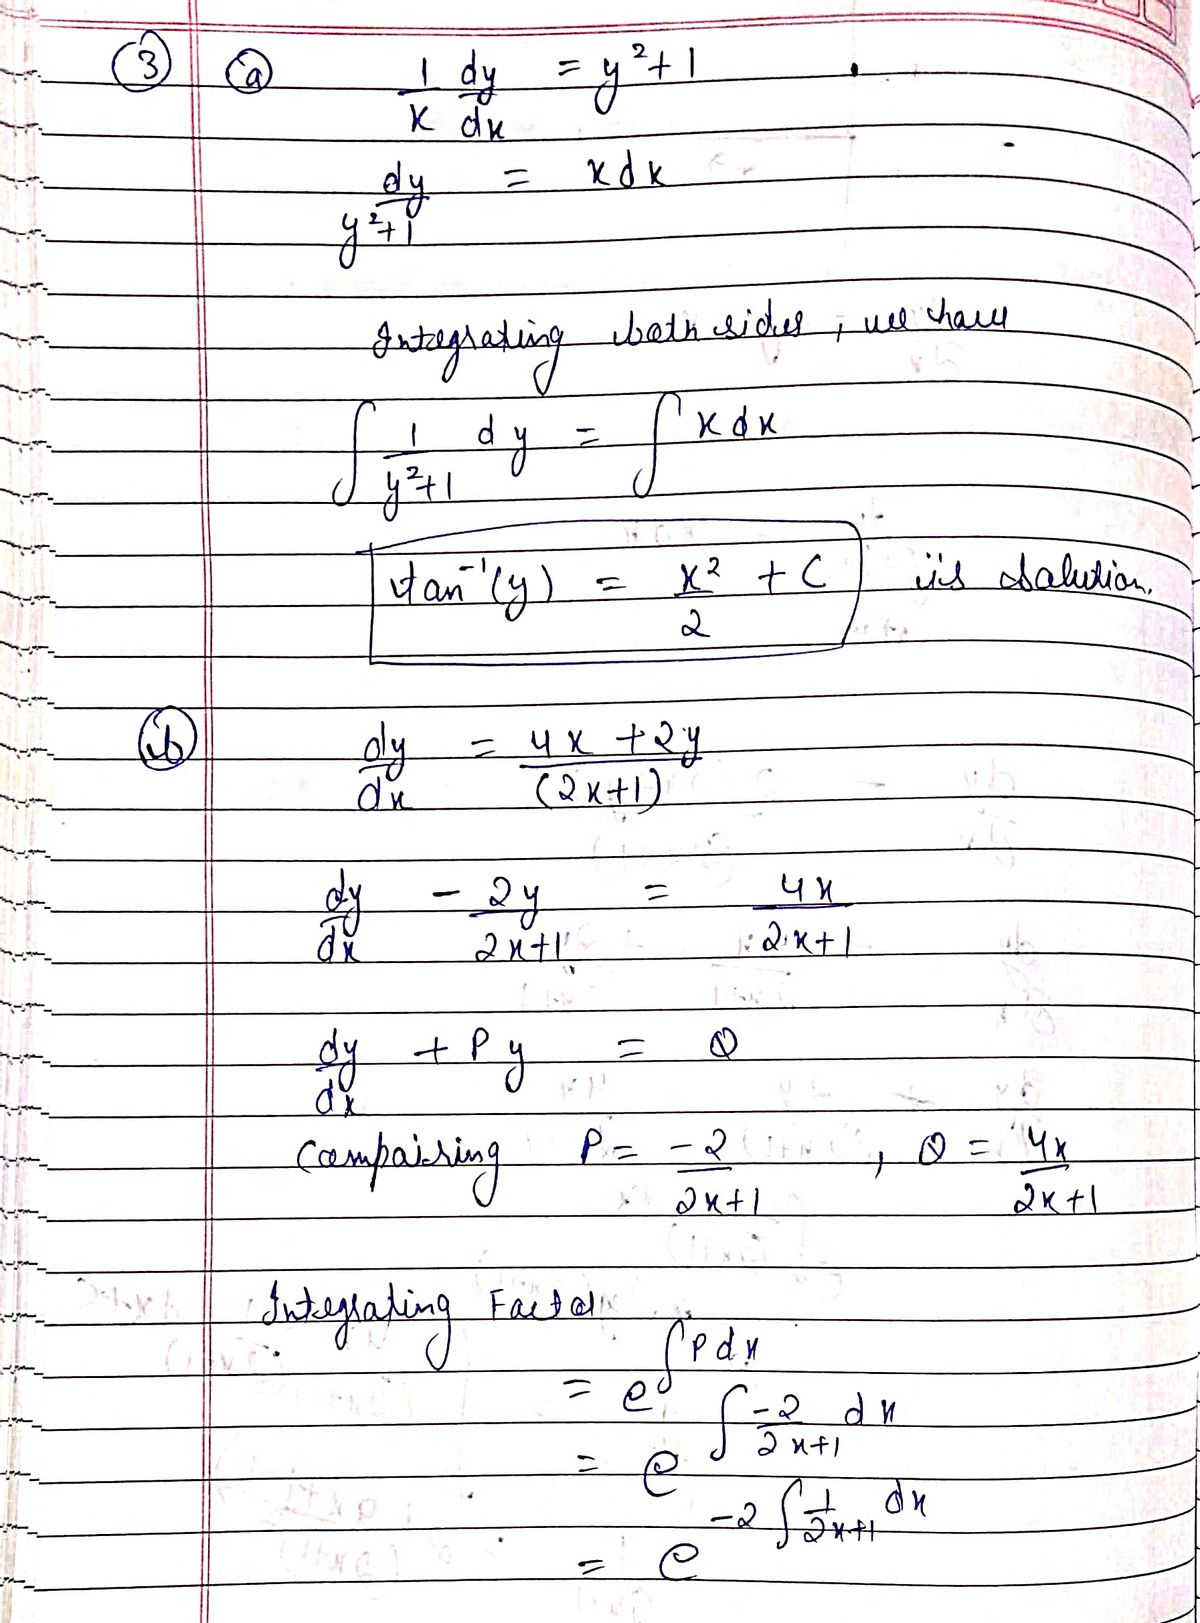 (3) (a) 1/x dy/dx = y²+1
dy/y²+1 = x dx
Integrating both sides, we have
∫ 1/y²+1 dy = ∫ x dx
tan⁻¹(y) = x²/2 + C is solution.
(b) dy/dx = 4x+2y/(2x+1)
dy/dx - 2y/2x+1 = 4x/2x+1
dy/dx + Py = Q
Compairing P = -2/2x+1 , Q = 4x/2x+1
Integrating Factor
= e^∫P dx
= e^∫-2/2x+1 dx
= e^-2∫1/2x+1 dx